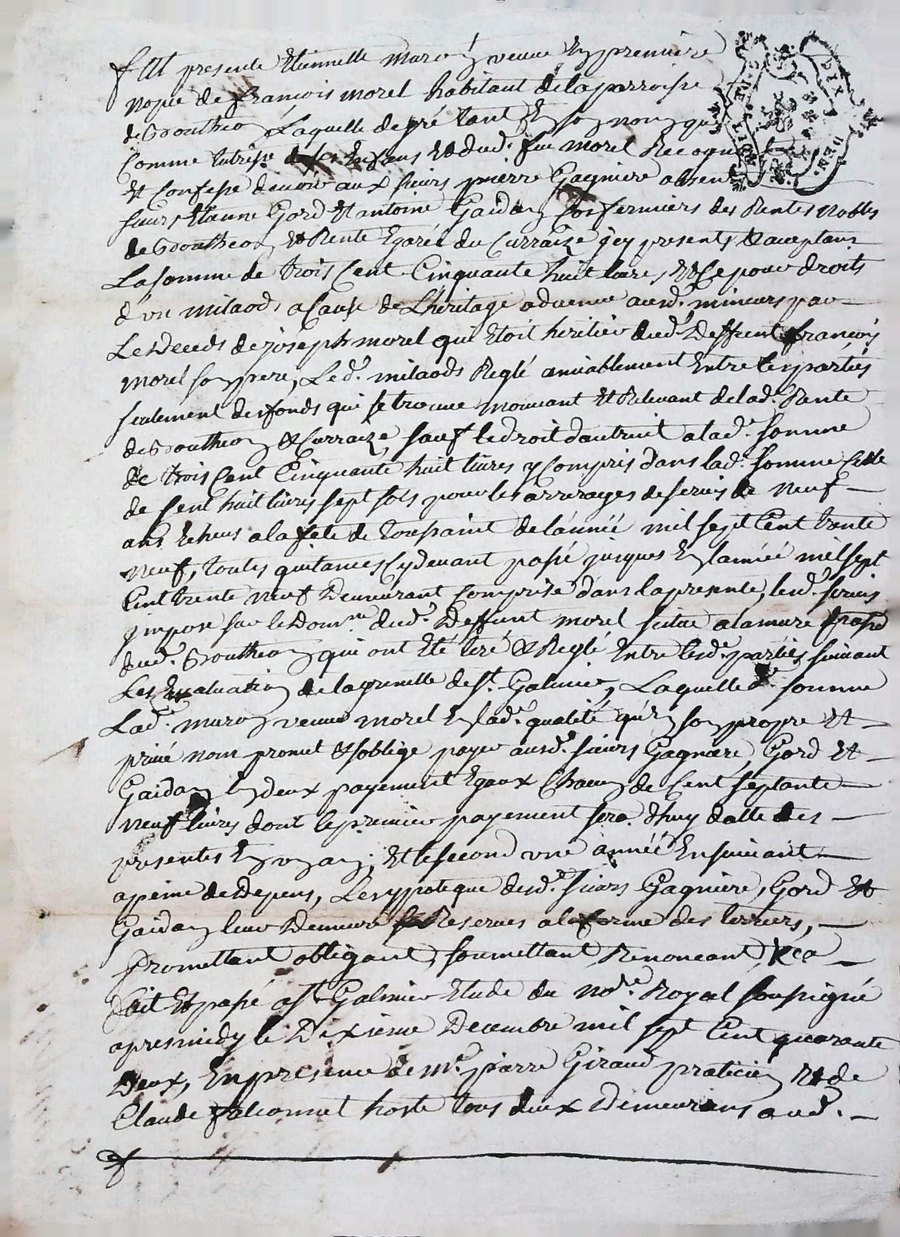 fut presente Etiennette maron veuve En premiere
nopce de françois morel habitant de la parroisse
de Boutheon Laquelle de gré tant En son nom que
Comme tutrisse de ses Enfans Et dud. feu morel Recognoit
Et Confesse devoir aux sieurs pierre Gagniere absent
sieurs Etienne Gord Et antoine Gaidan fermiers des Rentes Nobles
de Boutheon, Et Rente Egarée du Curraize jcy presents & aceptans
La somme de trois Cent Cinquante huit livre, Et Ce pour droits
d'un milaods a Cause de L'héritage advenue ausd. mineurs par
Le Deceds de joseph morel qui Etoit heritier dud. Deffunt françois
morel son pere, Led. milaods Reglé amiablement Entre les parties
seulement des fonds qui se trouve mouvant Et Relevant de lad. Rante
de Boutheon & Curraize, sauf le droit d'autruit a lad. somme
de trois Cent Cinquante huit livres y Compris dans lad. somme Celle
de Cent huit livres sept sols pour les arrerages de servis de neuf
ans Echeus a la fete de Toussaint de l'année mil sept Cent trente
neuf, toutes quitances Cy devant passé jusques En l'année mil sept
Cent trente neuf Demeurant Comprise dans la presente, lesd. servis
jmposé sur le Domne. dud. Deffunt morel scitué a lamure
dud. Boutheon qui ont Eté tiré & Reglé Entre lesd. parties suivant
Les Evaluation de la grenette de St. Galmier, Laquelle de. somme
Lad. maron veuve morel En lad. qualité qu'en son propre Et
privé nom promet & s'oblige payer ausd. sieurs Gagniere, Gord Et
Gaidan En deux payement Egaux Chacun de Cent septante
neuf livres dont le premier payement sera d'huy datte des
presentes En un an, Et le second une année Ensuivant
a peine de depens, Lesd. sieurs Gagniere, Gord Et
Gaidan leur Demeure Reserves a la forme des terriers,
promettant obligeant, soumettant, Renoncant, &ca
fait Et passé a St. Galmier Etude du nore. Royal soussigné
apres midy le Dixieme Decembre mil sept Cent quarante
Deux, En presence de me. pierre Giraud praticien Et de
Claude falconnet hoste tous deux Demeurans aud.